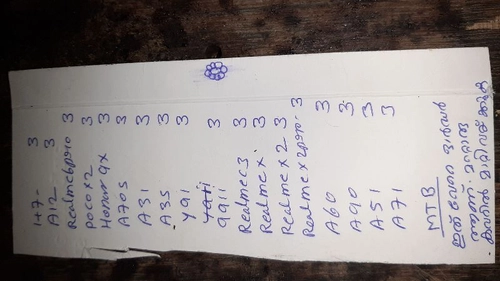 1+7- 3
A12 3
Realme6pro 3
poco x2 3
Honor 9x 3
A70s 3
A31 3
A35 3
Y91 3
9911 3
Realme c3 3
Realme x. 3
Realme x 2 3
Realme x 2pro- 3
A60 3
A90 3
A51 3
A71 3
MTB
ഇത് വേറെ
മാറ്റാരു
കവറിൽ മാറ്റിവയ്ക്കുക